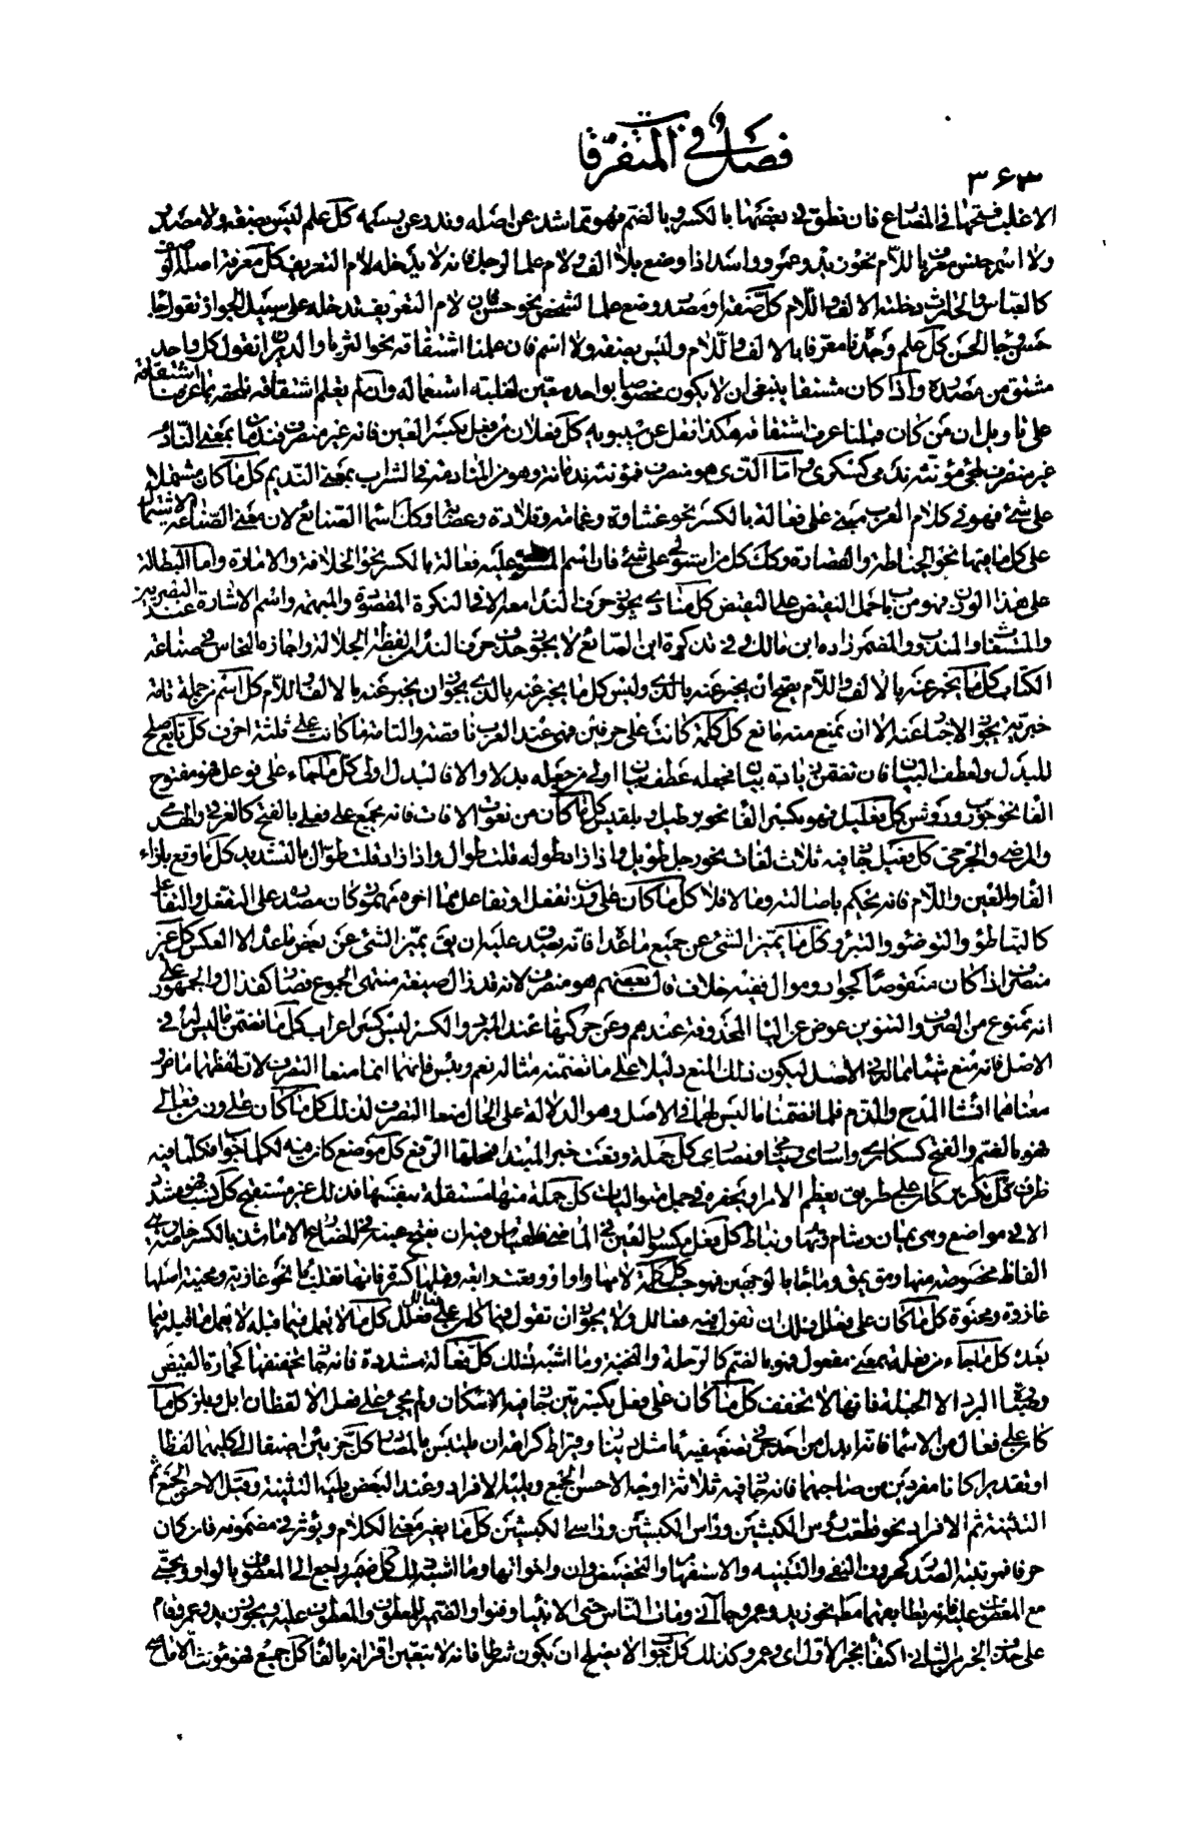 فصل في المتفرقات
٣٦٣
الاغلب فتحها في المضارع فان نطق في بعضها بالكسر وبالضم فهو مما شذ عن اصله وندر عن بسمه كل علم ليس بصفة ولا مصدر
ولا اسم جنس معرفا باللام نحو زيد وعمرو واسد اذا وضع بلا الف ولام علما لرجل فانه لا يدخله لام التعريف كل معرفة اصله الوصف
كالعباس والحارث دخلته الالف واللام كل صفة او مصدر وضع علما لشخص نحو حسن فان لام التعريف تدخله على سبيل الجواز تقول جا
حسن وجا الحسن كل علم وجدنا معرفا بالالف واللام وليس بصفة ولا اسم فان علمنا اشتقاقه نحو الثريا والدبران نقول كل واحد
مشتق من مصدره واذا كان مشتقا ينبغي ان لا يكون مخصوصا بواحد معين لغلبته استعماله وان لم يعلم اشتقاقه فلحقه بما عرفت اشتقاقه
على تاويل ان من كان قبلنا عرف اشتقاقه هكذا نقل عن سيبويه كل فعلان من فعل بكسر العين فانه غير منصرف فندمان بمعنى النادم
غير منصرف لمجيء مؤنثه ندمى كسكرى واما الذي هو منصرف فمؤنثه ندمانة وهو من المنادمة في الشراب بمعنى النديم كل ما كان مشتملا
على شيء فهو في كلام العرب مبني على فعالة بالكسر نحو غشاوة وعمامة وقلادة وعصابة وكذا اسما الصنائع لان معنى الصناعة الاشتمال
على كل ما فيها نحو الخياطة والقصارة وكذا كل من استولى على شيء فان اسم المستولى عليه فعالة بالكسر نحو الخلافة والامارة واما البطالة
على هذا الوزن فهو من باب حمل النقيض على النقيض كل منادى يجوز حرف الندا معه الا في النكرة المقصودة والمبهمة واسم الاشارة عند البصريين
والمستغاث والمندوب والمضمر زاده ابن مالك وفي تذكرة ابن الصائغ لا يجوز حذف حرف الندا من لفظة الجلالة واجازه النحاس في صناعة
الكتاب كل ما يخبر عنه بالالف واللام يصح ان يخبر عنه بالذي وليس كل ما يخبر عنه بالذي يجوز ان يخبر عنه بالالف واللام كل اسم من جملة تامة
خبرية يجوز الاخبار عنه الا ان يمنع منه مانع كل كلمة كانت على حرفين فهي عند العرب ناقصة والتامة ما كانت على ثلثة احرف كل تابع صلح
للبدل ولعطف البيان فان تضمن زيادة بيان فجعله عطف بيان اولى من جعله بدلا والا فالبدل اولى كل ما جاء على فوعل فهو مفتوح
الفا نحو جورب وروشن كل فعليل فهو بكسر الفا نحو برطيل وبلقيس كل ما كان من نعوت الافات فانه يجمع على فعلى بالفتح كالغرقى والهلكى
والمرضى والجرحى كل فعيل جا فيه ثلاث لغات نحو رجل طويل واذا زاد طوله قلت طوال واذا زاد قلت طوّال بالتشديد كل ما وقع بازاء
الفا والعين واللام فانه يحكم باصالته وما لا فلا كل ما كان على وزن تفعل او تفاعل مما اخره مهموز كان مصدره على التفعل والتفاعل
كالتباطؤ والتوضؤ والتبرؤ وكل ما يميز الشئ عن جميع ما عداه فانه يصدق عليه ان يق يميز الشئ عن بعض ما عداه لا العكس كل غير
منصرف اذا كان منقوصا كجوار وموال ففيه خلاف قال بعضهم هو منصرف لانه قد زال صيغة منتهى الجموع فصار كقذال والجمهور على
انه ممنوع من الصرف والتنوين عوض عن اليا المحذوفة عندهم وعن حركتها عند المبرد والكسر ليس كسر اعراب كل ما تضمن ما ليس له في
الاصل فانه منع شيئا مما له في الاصل ليكون ذلك المنع دليلا على ما تضمنه مثاله نعم وبئس فانهما انما منعا التصرف لان لفظهما ماض و
معناهما انشا المدح والذم فلما تضمنا ما ليس لهما في الاصل وهو الدلالة على الحال منعا التصرف لذلك كل ما كان على وزن فعالى
فهو بالضم والفتح كسكارى واسارى ويتامى ونصارى كل جملة وقعت خبر المبتدا فمحلها الرفع كل موضع كان فيه لكلما جواب فكلما فيه
ظرف كل نكرير كان على طريق تعظيم الامر او تحقيره في جمل متواليات كل جملة منها مستقلة بنفسها فذلك غير مستقبح كل نسب فهو مشدد
الا في مواضع وهي يمان وشام وتهام ونباط كل فعل مكسور العين في الماضي فالقياس فيه ان يفتح عينه في المضارع الا ما شذ بالكسر خاصة في
الفاظ مخصوصة منها ومق يمق وما جا بالوجهين فهو حسب كل كلمة لامها واو اذا وقعت رابعة وقبلها كسرة فانها تقلب يا نحو غازية ومحنية اصلها
غازوة ومحنوة كل ما كان على فعلل فلك ان تقول فيه فعالل ولا يجوز ان تقول فيما كان على فعالل فعلل كل ما لا يعمل فيما قبله لا يعمل ما قبله فيما
بعده كل ما جاء من فعلة بمعنى مفعول فهو بالضم كالرحلة والنخبة وما اشبه ذلك كل فعالة مشددة فانه جا تخفيفها كحمارة القيض
وصبارة البرد الا الحبالة فانها لا تخفف كل ما كان على فعل بكسرتين جا فيه الاسكان ولم يجئ على فعل الا لفظان ابل وبلز كل ما
كان على فعال من الاسما فانه ابدل من احد حرفي تضعيفه يا مثل دينار وقيراط كراهة ان يلتبس بالمصادر كل جزئين اضيفا الى كليهما لفظا
او تقديرا كانا مفردين من صاحبهما فانه جا فيه ثلاثة اوجه الاحسن الجمع ويليه الافراد وعند البعض يليه التثنية وقيل الاحسن الجمع ثم
التثنية ثم الافراد نحو قطعت رؤس الكبشين وراس الكبشين وراسي الكبشين كل ما يغير معنى الكلام ويؤثر في مضمونه فان كان
حرفا فمرتبته الصدر كحروف النفي والتنبيه والاستفهام والتحضيض وان واخواتها وما اشبه ذلك كل ضمير راجع الى المعطوف بالواو وحتى
مع المعطوف عليه فانه يطابقهما مطلقا نحو زيد وعمرو جاآني ومات الناس حتى الانبيا وفنوا والضمير للمعطوف والمعطوف عليه ويجوز زيد وعمرو قام
على حذف الخبر من الثاني اكتفا بخبر الاول اي وعمرو كذلك كل جواب لا يصلح ان يكون شرطا فانه لا يتعين اقترانه بالفا كل جمع فهو مؤنث الا ما صح